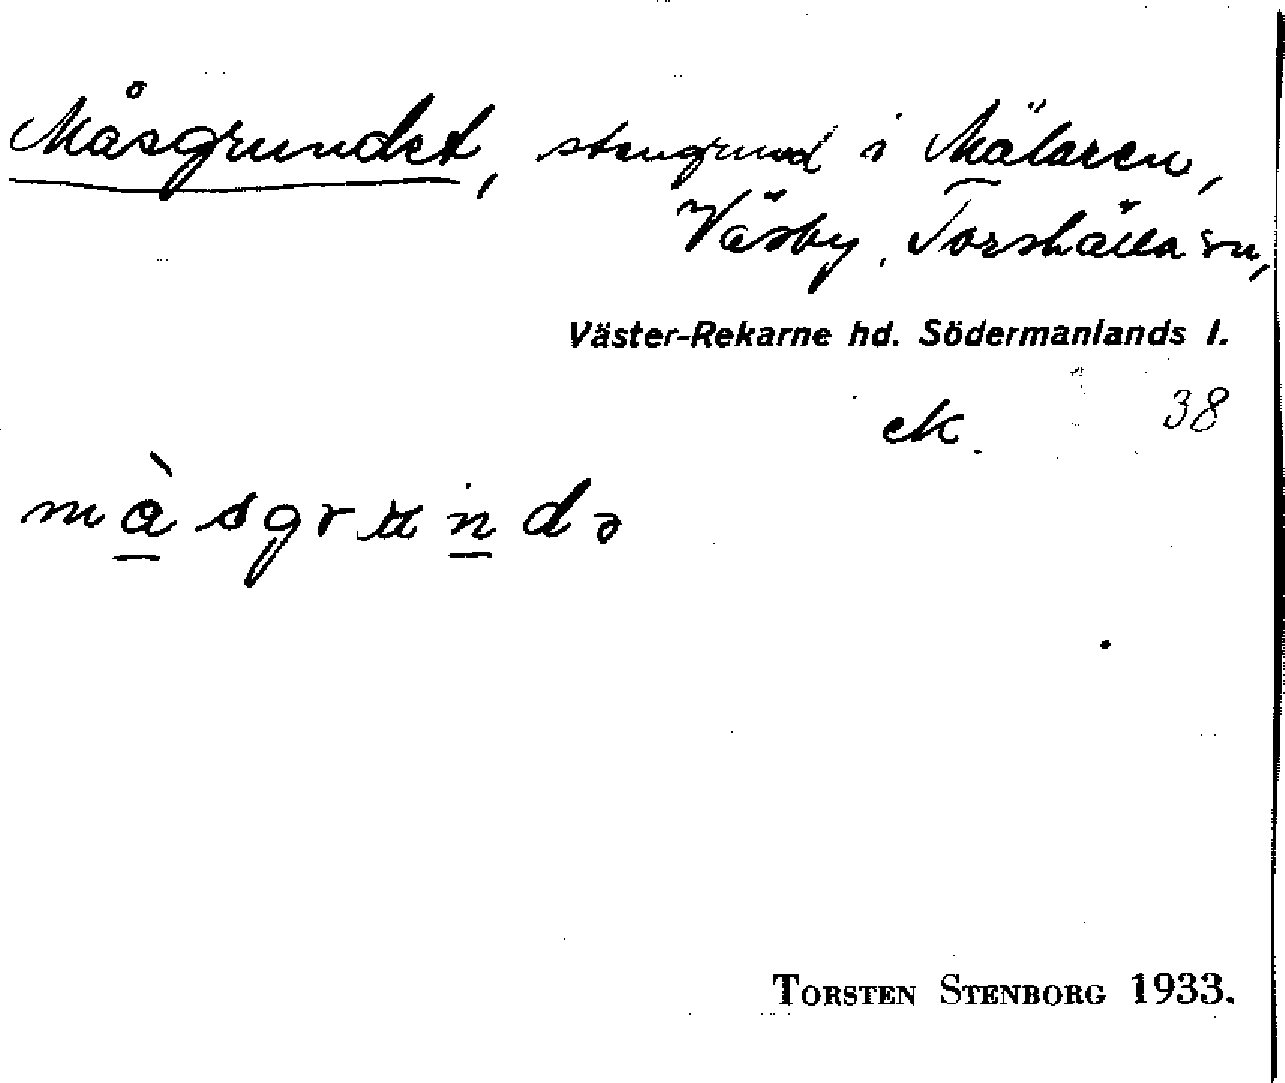 Måsgrundet, stengrund i Mälaren,
Väsby, Torshälla sn,
Väster-Rekarne hd. Södermanlands l.
ek. 38
måsgrundə
TORSTEN STENBORG 1933.